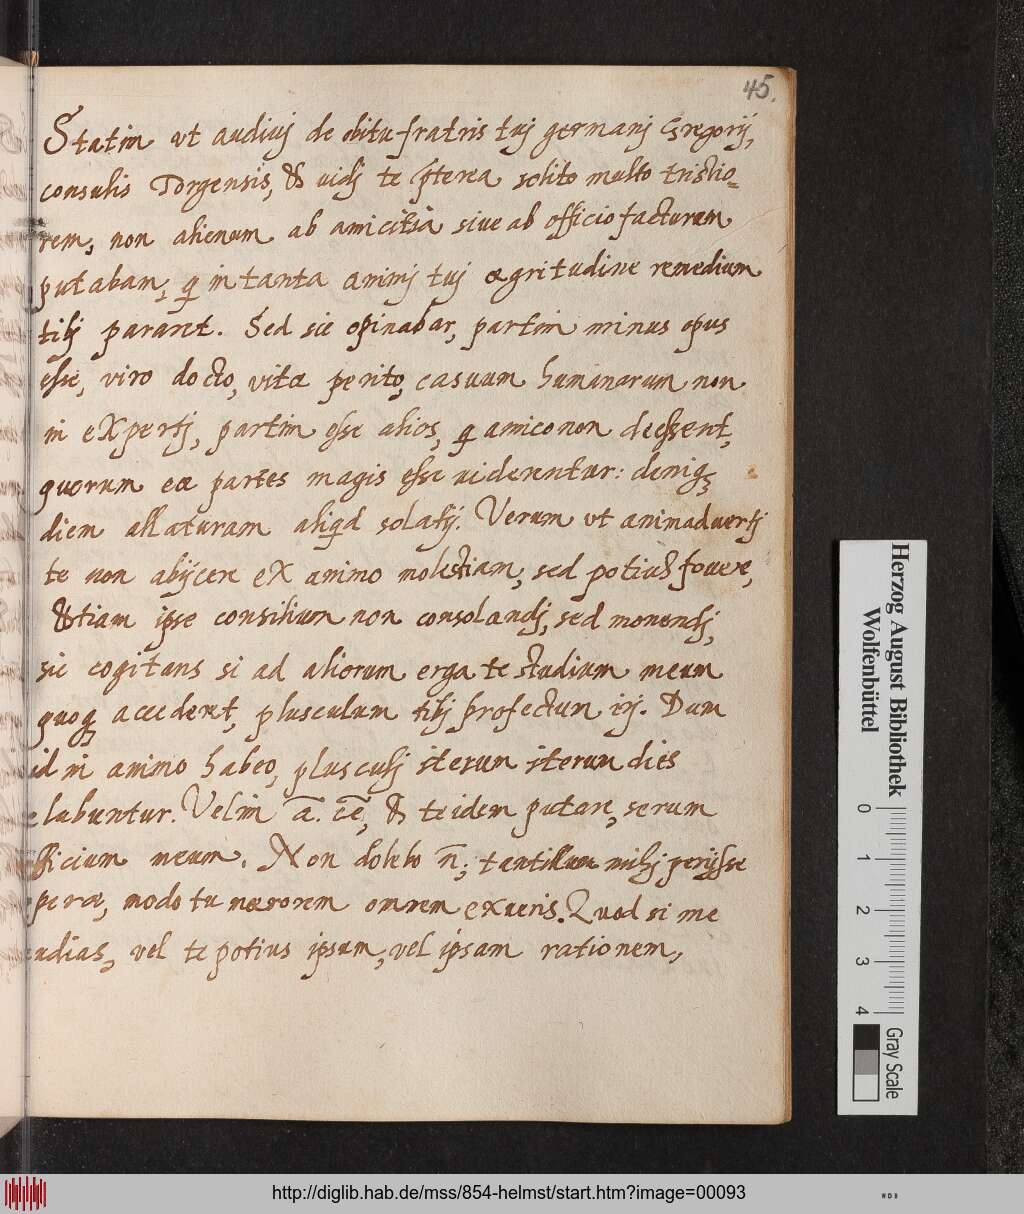 45.
Statim vt audiuj de obitu fratris tuj germanj Gregorij,
consulis Torgensis, & uidj te p̃terea solito multo tristio=
rem, non alienum ab amicitia siue ab officio facturum
putabam, q in tanta animj tuj ægritudine remedium
tibj pararet. Sed sic opinabar, partim minus opus
esse, viro docto, vitæ perito, casuum humanarum non
in expertj, partim esse alios, q amico non deessent,
quorum eæ partes magis esse uiderentur: deniq
diem allaturam aliqd solatij. Verum vt animaduertj
te non abijcere ex animo molestiam, sed potius fouere,
&tiam ipse consilium non consolandj, sed monendj,
sic cogitans si ad aliorum erga te studium meum
quoq accederet, plusculum tibj profectum irj. Dum
id in animo habeo, plusculj iterum iterum dies
elabuntur. Velim a. ce, & te idem putare, serum
officium meum. Non dolebo n; tantillum mihj perijsse
operæ, modo tu mærorem omnem exueris. Quod si me
audias, vel te potius ipsum, vel ipsam rationem,
Herzog August Bibliothek
Wolfenbüttel
0 1 2 3 4
Gray Scale
http://diglib.hab.de/mss/854-helmst/start.htm?image=00093
WDB